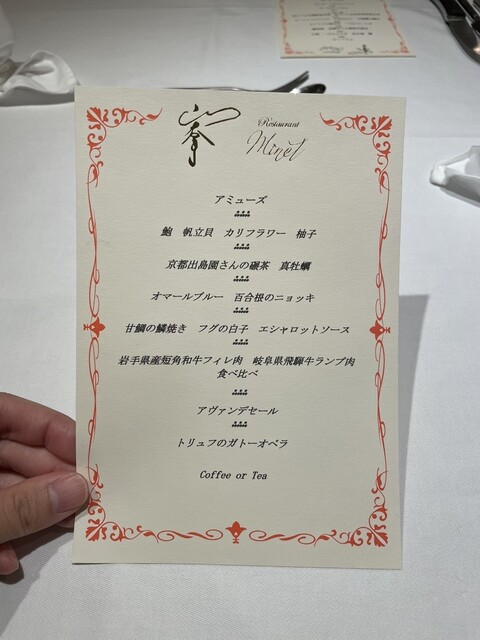 峯
Restaurant
Minet
アミューズ
鮑 帆立貝 カリフラワー 柚子
京都出島園さんの碾茶 真牡蠣
オマールブルー 百合根のニョッキ
甘鯛の鱗焼き フグの白子 エシャロットソース
岩手県産短角和牛フィレ肉 岐阜県飛騨牛ランプ肉
食べ比べ
アヴァンデセール
トリュフのガトーオペラ
Coffee or Tea